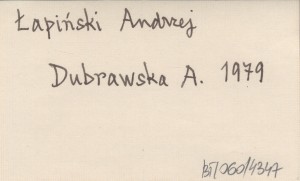 Łapiński Andrzej
Dubrawska A. 1979
BJ/060/4347